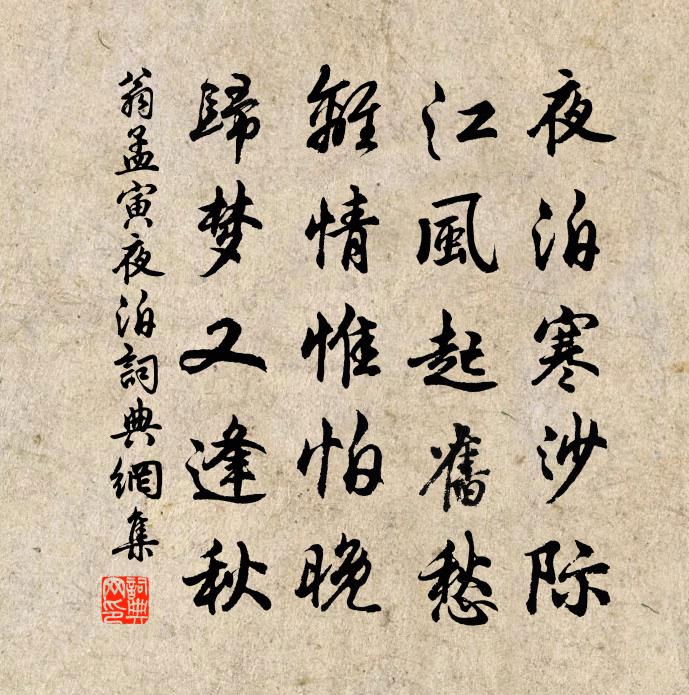 夜泊寒沙际
江風起舊愁
離情惟怕晚
歸梦又逢秋
翁孟寅夜泊詞典網集
詞典
网印